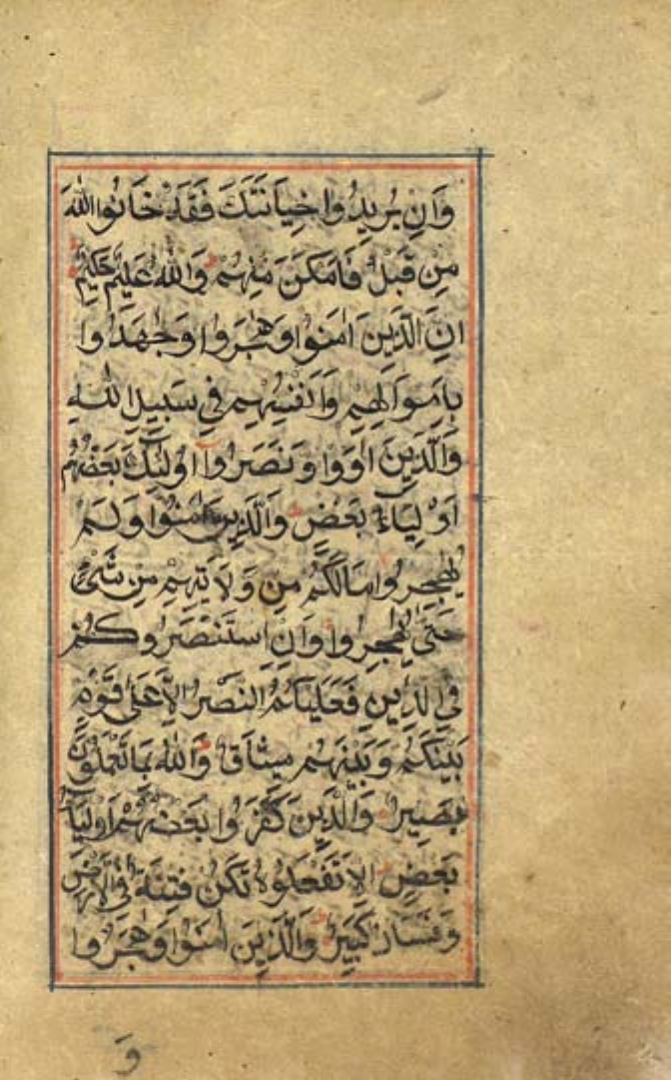 وَاِنْ يُرِيدُوا خِيَانَتَكَ فَقَدْ خَانُوا اللّٰهَ
مِنْ قَبْلُ فَاَمْكَنَ مِنْهُمْ وَاللّٰهُ عَلِيمٌ حَكِيمٌ
اِنَّ الَّذِينَ اٰمَنُوا وَهَاجَرُوا وَجٰهَدُوا
بِاَمْوَالِهِمْ وَاَنْفُسِهِمْ فِي سَبِيلِ اللّٰهِ
وَالَّذِينَ اٰوَوْا وَنَصَرُوا اُولٰئِكَ بَعْضُهُمْ
اَوْلِيَاءُ بَعْضٍ وَالَّذِينَ اٰمَنُوا وَلَمْ
يُهَاجِرُوا مَالَكُمْ مِنْ وَلَايَتِهِمْ مِنْ شَيْءٍ
حَتّٰى يُهَاجِرُوا وَاِنِ اسْتَنْصَرُوكُمْ
فِي الدِّينِ فَعَلَيْكُمُ النَّصْرُ اِلَّا عَلٰى قَوْمٍ
بَيْنَكُمْ وَبَيْنَهُمْ مِيثَاقٌ وَاللّٰهُ بِمَا تَعْمَلُونَ
بَصِيرٌ وَالَّذِينَ كَفَرُوا بَعْضُهُمْ اَوْلِيَاءُ
بَعْضٍ اِلَّا تَفْعَلُوهُ تَكُنْ فِتْنَةٌ فِي الْاَرْضِ
وَفَسَادٌ كَبِيرٌ وَالَّذِينَ اٰمَنُوا وَهَاجَرُوا
وَ